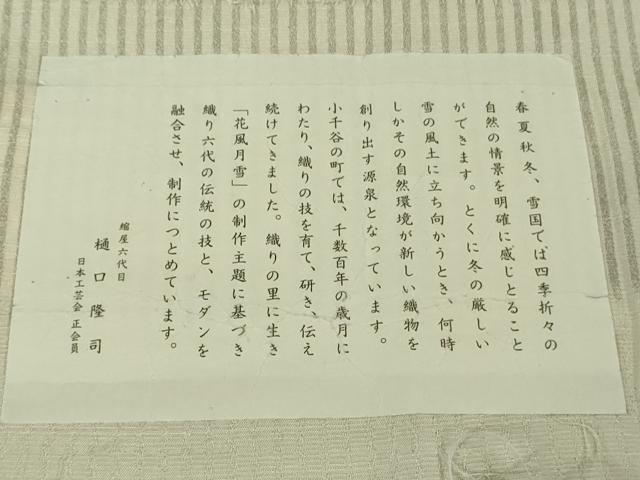 春夏秋冬、雪国では四季折々の
自然の情景を明確に感じとること
ができます。とくに冬の厳しい
雪の風土に立ち向かうとき、何時
しかその自然環境が新しい織物を
創り出す源泉となっています。
小千谷の町では、千数百年の歳月に
わたり、織りの技を育て、研き、伝え
続けてきました。織りの里に生き
「花風月雪」の制作主題に基づき
織り六代の伝統の技と、モダンを
融合させ、制作につとめています。
縮屋六代目
樋口隆司
日本工芸会 正会員